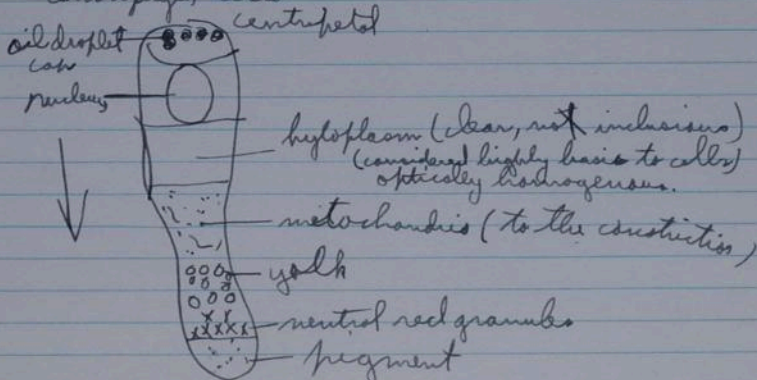 centripetal
oil droplet
cap
nucleus
hyloplasm (clear, not inclusions)
(considered highly basic to cells)
optically homogenous.
mitochondria (to the constriction)
yolk
neutral red granules
pigment